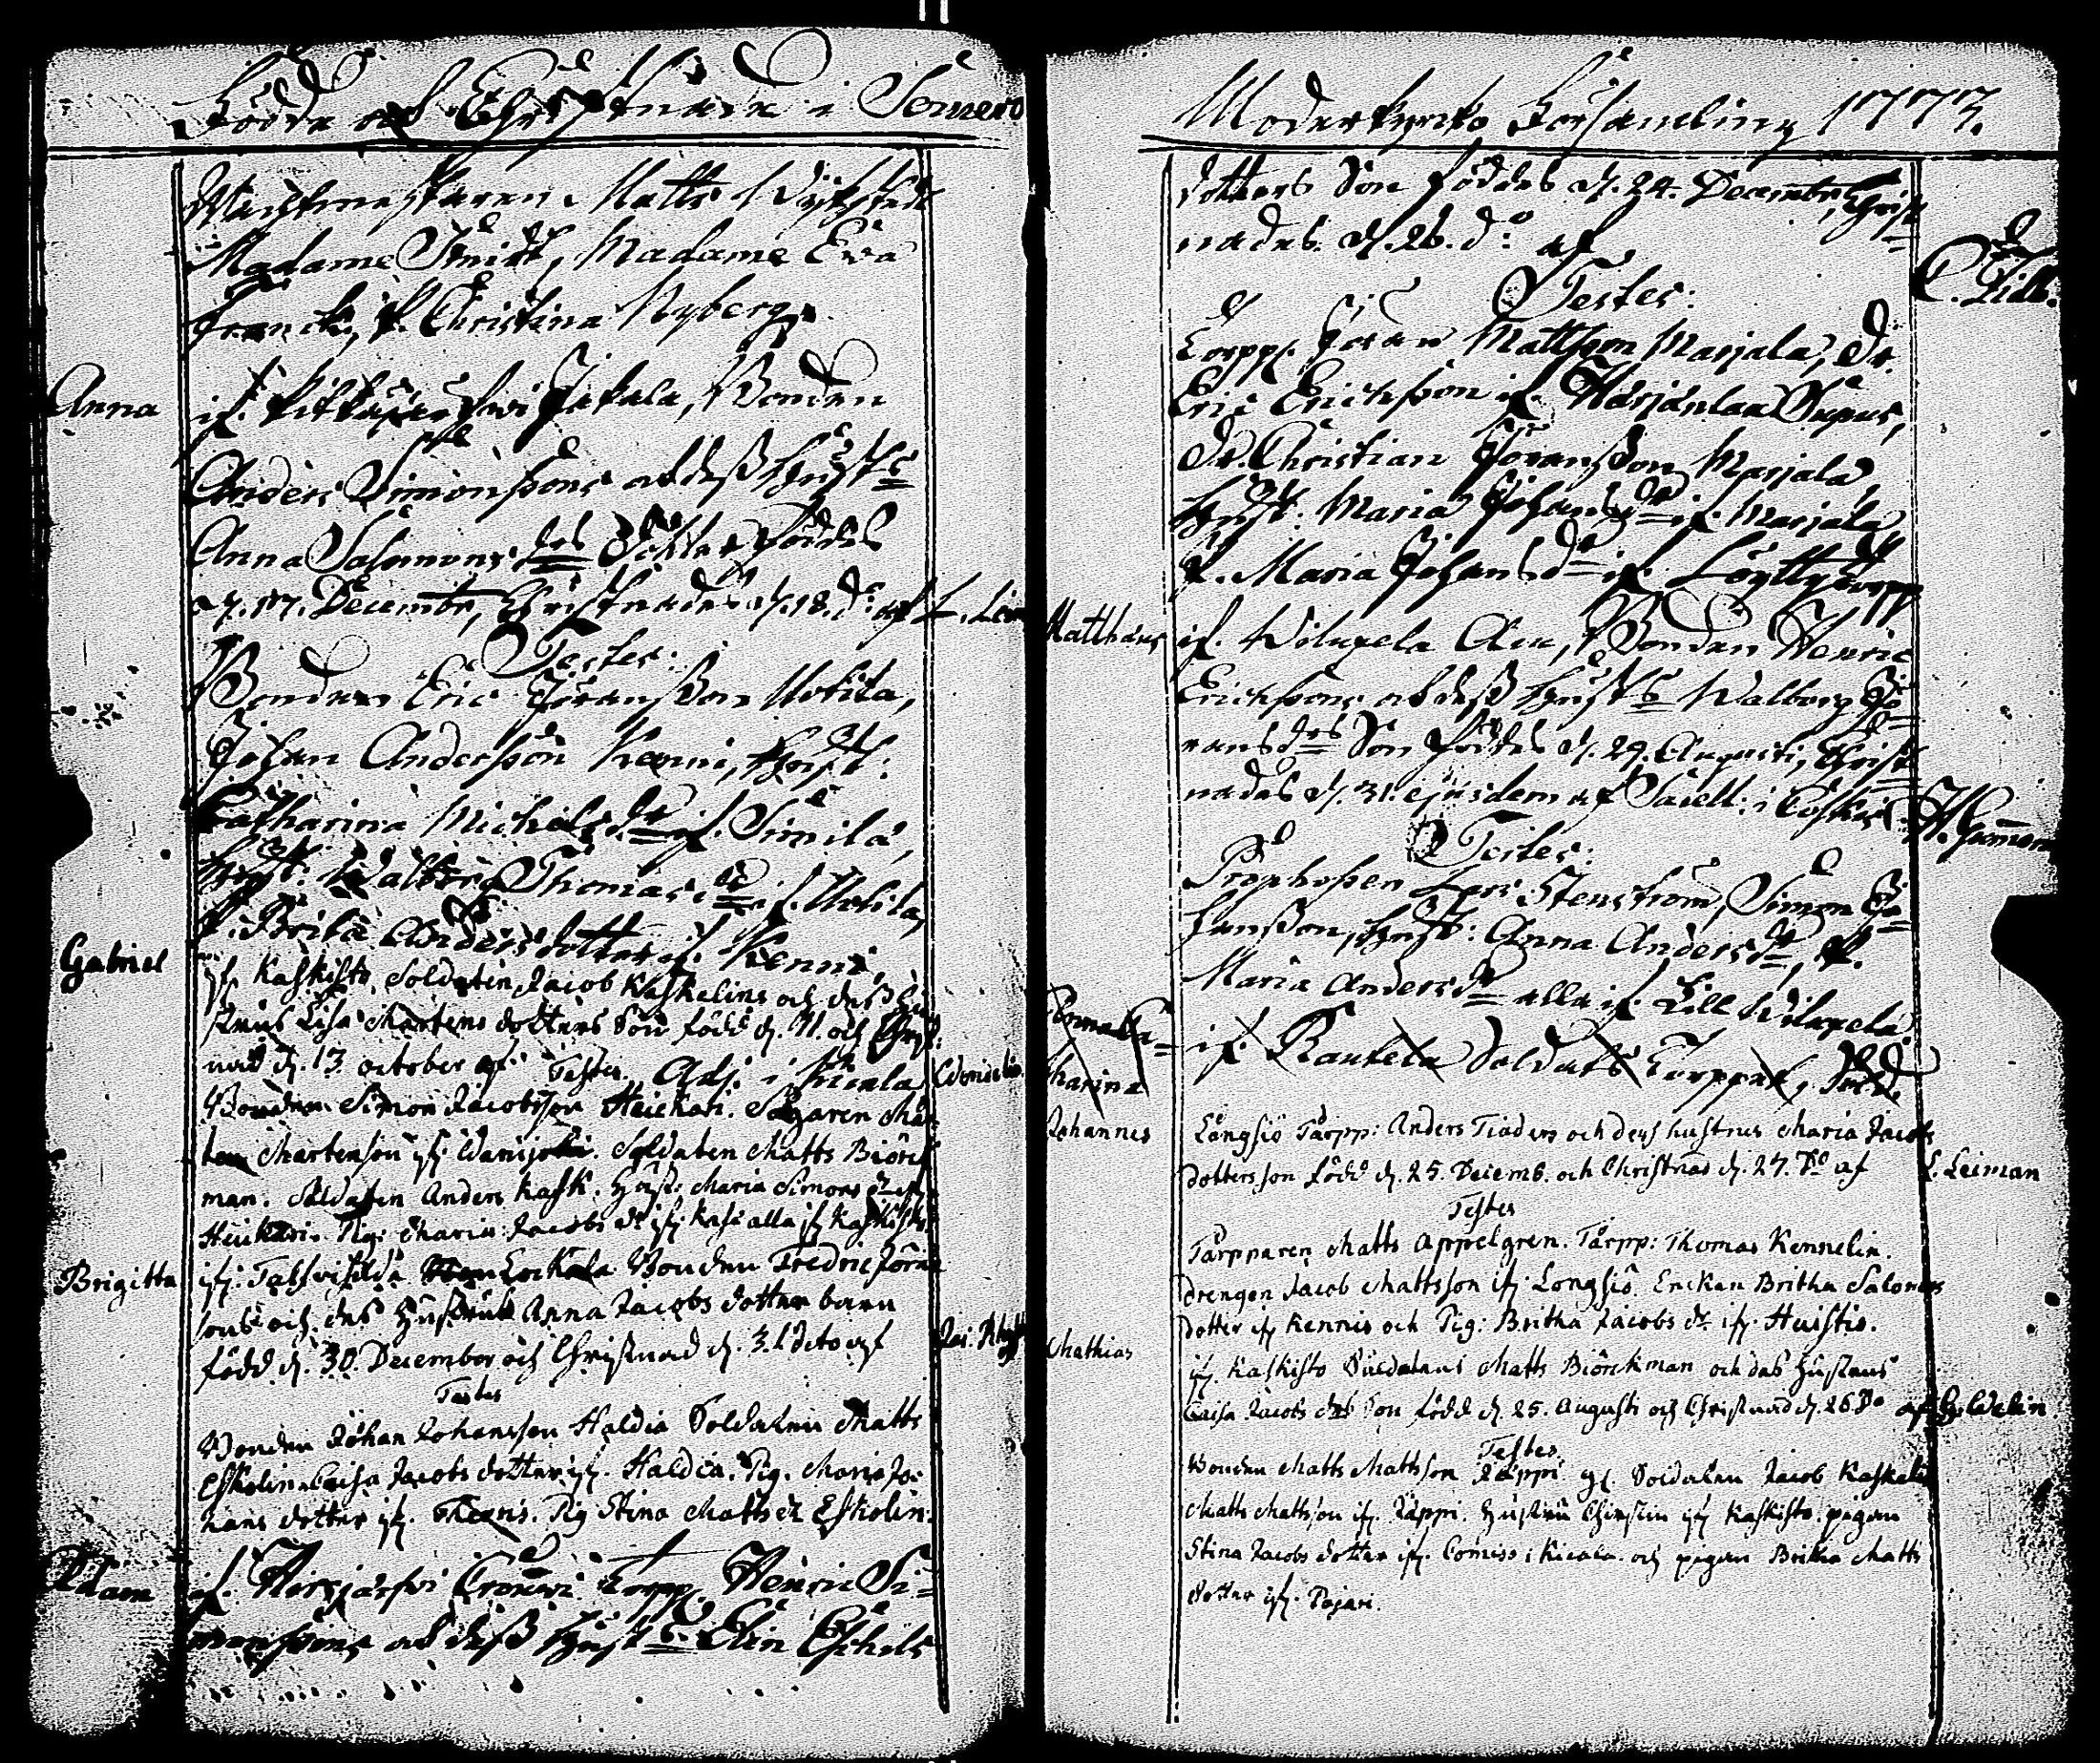 Födde och Christnade i Somero
Wachtmestaren Matts
Madame Smitt, Madame Eva
Franck, P. Christina Nyberg.
Anna
ifr. Jakala, Bonden
Anders Simonssons och dess hust:s
Anna Salomons d:rs Dotter föddes
d. 17. Decembr, Christnades d. 18. d:o af L. Leim
Testes:
Bonden Eric Jöransson Uotila,
Johan Andersson Kenni, hust:
Catharina Michels d:r ifr. Simila,
hust: Walborg Thomas d:r ifr. Uotila,
P. Brita Anders dotter ifr. Kenni,
Gabriel
ifr. Kaskisto, Soldaten Jacob Kaskelins och dess hu
strus Lisa Mårtens dotters Son född d. 11. och Christ:
nad d. 13 october af Testes. Adj. i Kicala
Bonden Simon Jacobsson Heickari. Mår
ten Mårtenson ifr. Soldaten Matts Biörck
man. Soldaten Anders Kask. Hust: Maria Simons d:r ifr.
Heickari. Pig: Maria Jacobs d:r ifr. alla ifr. Kaskisto
Brigitta
ifr. Bonden Fredric Jöran
sons och des Hustrus Anna Jacobs dotter barn
född d. 30. December och Christnad d. 31 dito af
Testes
Bonden Johan Johansson Haldia Soldaten Matts
Eskolin. Caisa Jacobs dotter ifr. Haldia. Pig. Maria Jo:
hans dotter ifr. Pig Stina Matts d:r Eskolin.
Adam
ifr. Hirsjärfvi Torpp. Henric Si=
monssons och dess hust:s Elin Eskels
Moderkyrko Församling 1773.
dotters Son föddes d. 24. Decembr, Christ
nades d. 26. d:o af
C. Lidb.
Testes:
Torpp. Jöran Mattsson Marjala, Dr.
Eric Ericksson ifr. Supus,
Dr. Christian Jöransson Marjala,
hust: Maria Johans d:r ifr. Marjala
P. Maria Johans d:r ifr. Löytty Torpp
Matthæus
ifr. Wilugela Bonden Henric
Erichssons och dess hust:s Walborg Jö=
rans d:rs Son föddes d. 29. Augusti, Christ
nades d. 31. ejusdem af Sacell: i Coskis H. Gummer
Testes:
Prophossen Lars Stenström, Simon Jo=
hansson, hust: Anna Anders d:r, P.
Maria Anders d:r alla ifr. Lill Wilugela
Anna Ca=
tharina
ifr. Rautela Soldats Torppet,
Johannes
Långsiö Tårpp: Anders Tiaders och dess hustrus Maria Jacobs
dotters son född d. 25. Decemb. och Christnad d. 27. D:o af L. Leiman
Testes
Tårpparen Matts Appelgren. Tårpp: Thomas Kennelin.
drengen Jacob Mattsson ifr. Longsiö. Enckan Britha Salomons
dotter ifr. Kennis och Pig: Britha Jacobs d:r ifr. Huistis.
Mathias
ifr. Kaskisto Soldatens Matts Biörckman och des Hustrus
Caisa Jacobs d:rs Son född d. 25. Augusti och Christnad d. 26 D:o af Boldelin
Testes
Bonden Matts Mattsson Räppi, Soldaten Jacob Kaskelin
Matts Mattsson ifr. Räppi. Hustru Christin ifr. Kaskisto. pigan
Stina Jacobs dotter ifr. i Kicala. och pigan Britha Matts
dotter ifr. Pajari.